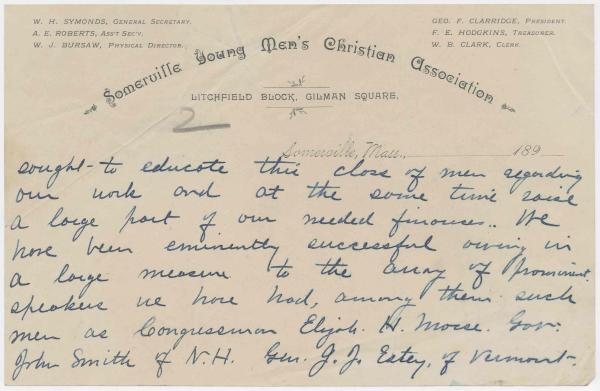 W. H. SYMONDS, GENERAL SECRETARY.
A. E. ROBERTS, ASS'T SEC'Y.
W. J. BURSAW, PHYSICAL DIRECTOR.
GEO. F. CLARRIDGE, PRESIDENT.
F. E. HODGKINS, TREASURER.
W. B. CLARK, CLERK.
Somerville Young Men's Christian Association
LITCHFIELD BLOCK, GILMAN SQUARE.
2
Somerville, Mass., 189
sought to educate this class of men regarding
our work and at the same time raise
a large part of our needed finances.. We
have been eminently successful owing in
a large measure to the array of prominent
speakers we have had, among them such
men as Congressman Elijah. H. Morse. Gov.
John Smith of N.H. Gen. J. J. Estey, of Vermont.